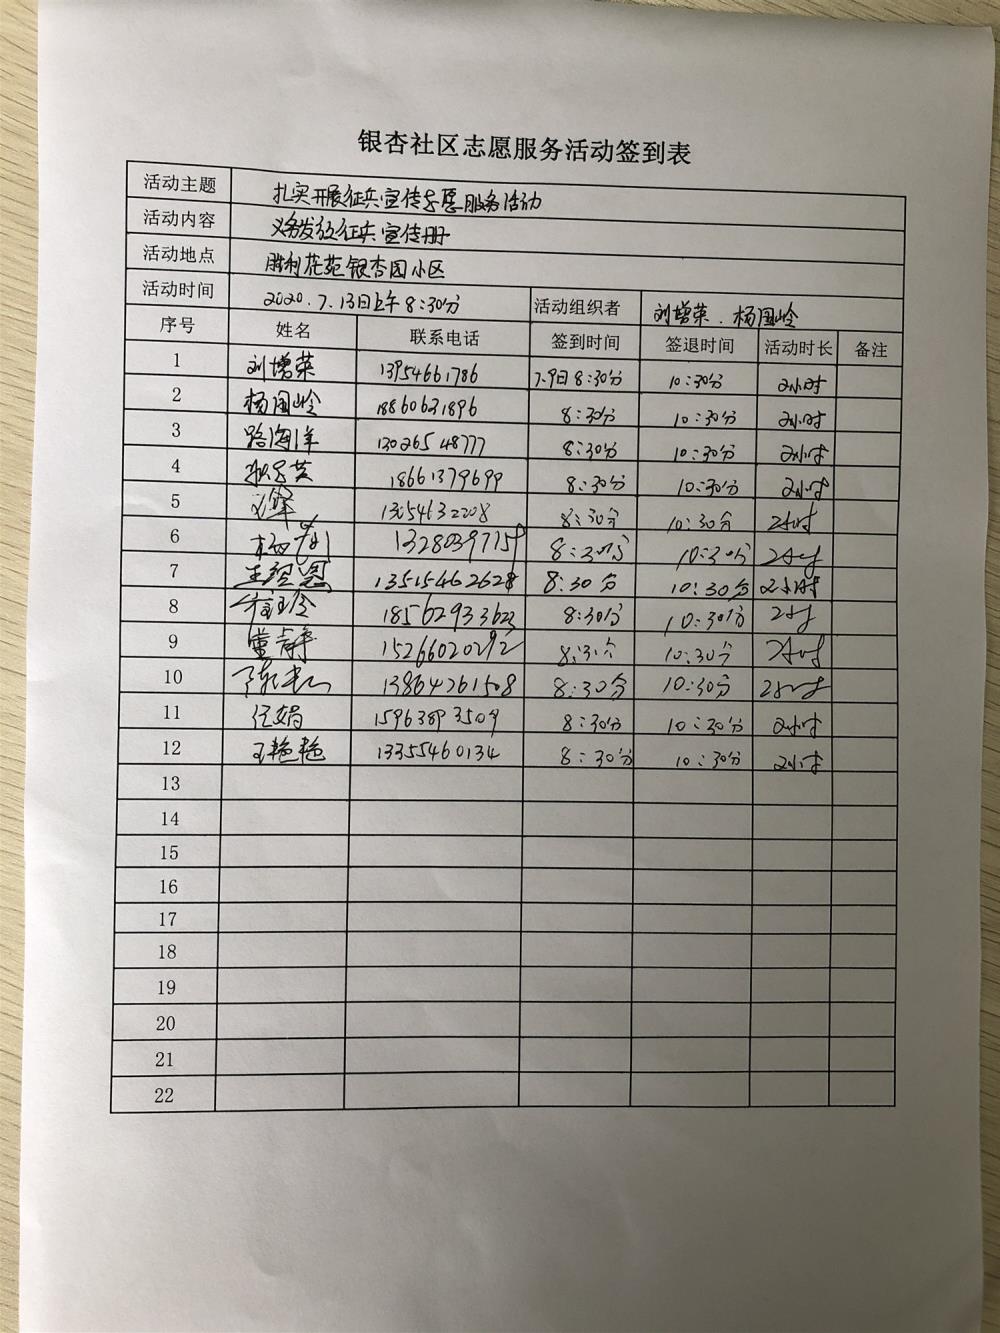 银杏社区志愿服务活动签到表
活动主题 扎实开展征兵宣传志愿服务活动
活动内容 义务发放征兵宣传册
活动地点 胜利花苑银杏园小区
活动时间 2020.7.13日上午8:30分 活动组织者 刘增荣.杨国岭
序号 姓名 联系电话 签到时间 签退时间 活动时长 备注
1 刘增荣 13954661786 7.9日8:30分 10:30分 2小时
2 杨国岭 18860631896 8:30分 10:30分 2小时
3 路海洋 13026548777 8:30分 10:30分 2小时
4 18661379699 8:30分 10:30分 2小时
5 13054632208 8:30分 10:30分 2小时
6 13280397159 8:30分 10:30分 2小时
7 13515462628 8:30分 10:30分 2小时
8 18562933623 8:30分 10:30分 2小时
9 董静 15266020292 8:30分 10:30分 2小时
10 13864261508 8:30分 10:30分 2小时
11 任娟 15963893509 8:30分 10:30分 2小时
12 王艳艳 13355460134 8:30分 10:30分 2小时
13
14
15
16
17
18
19
20
21
22